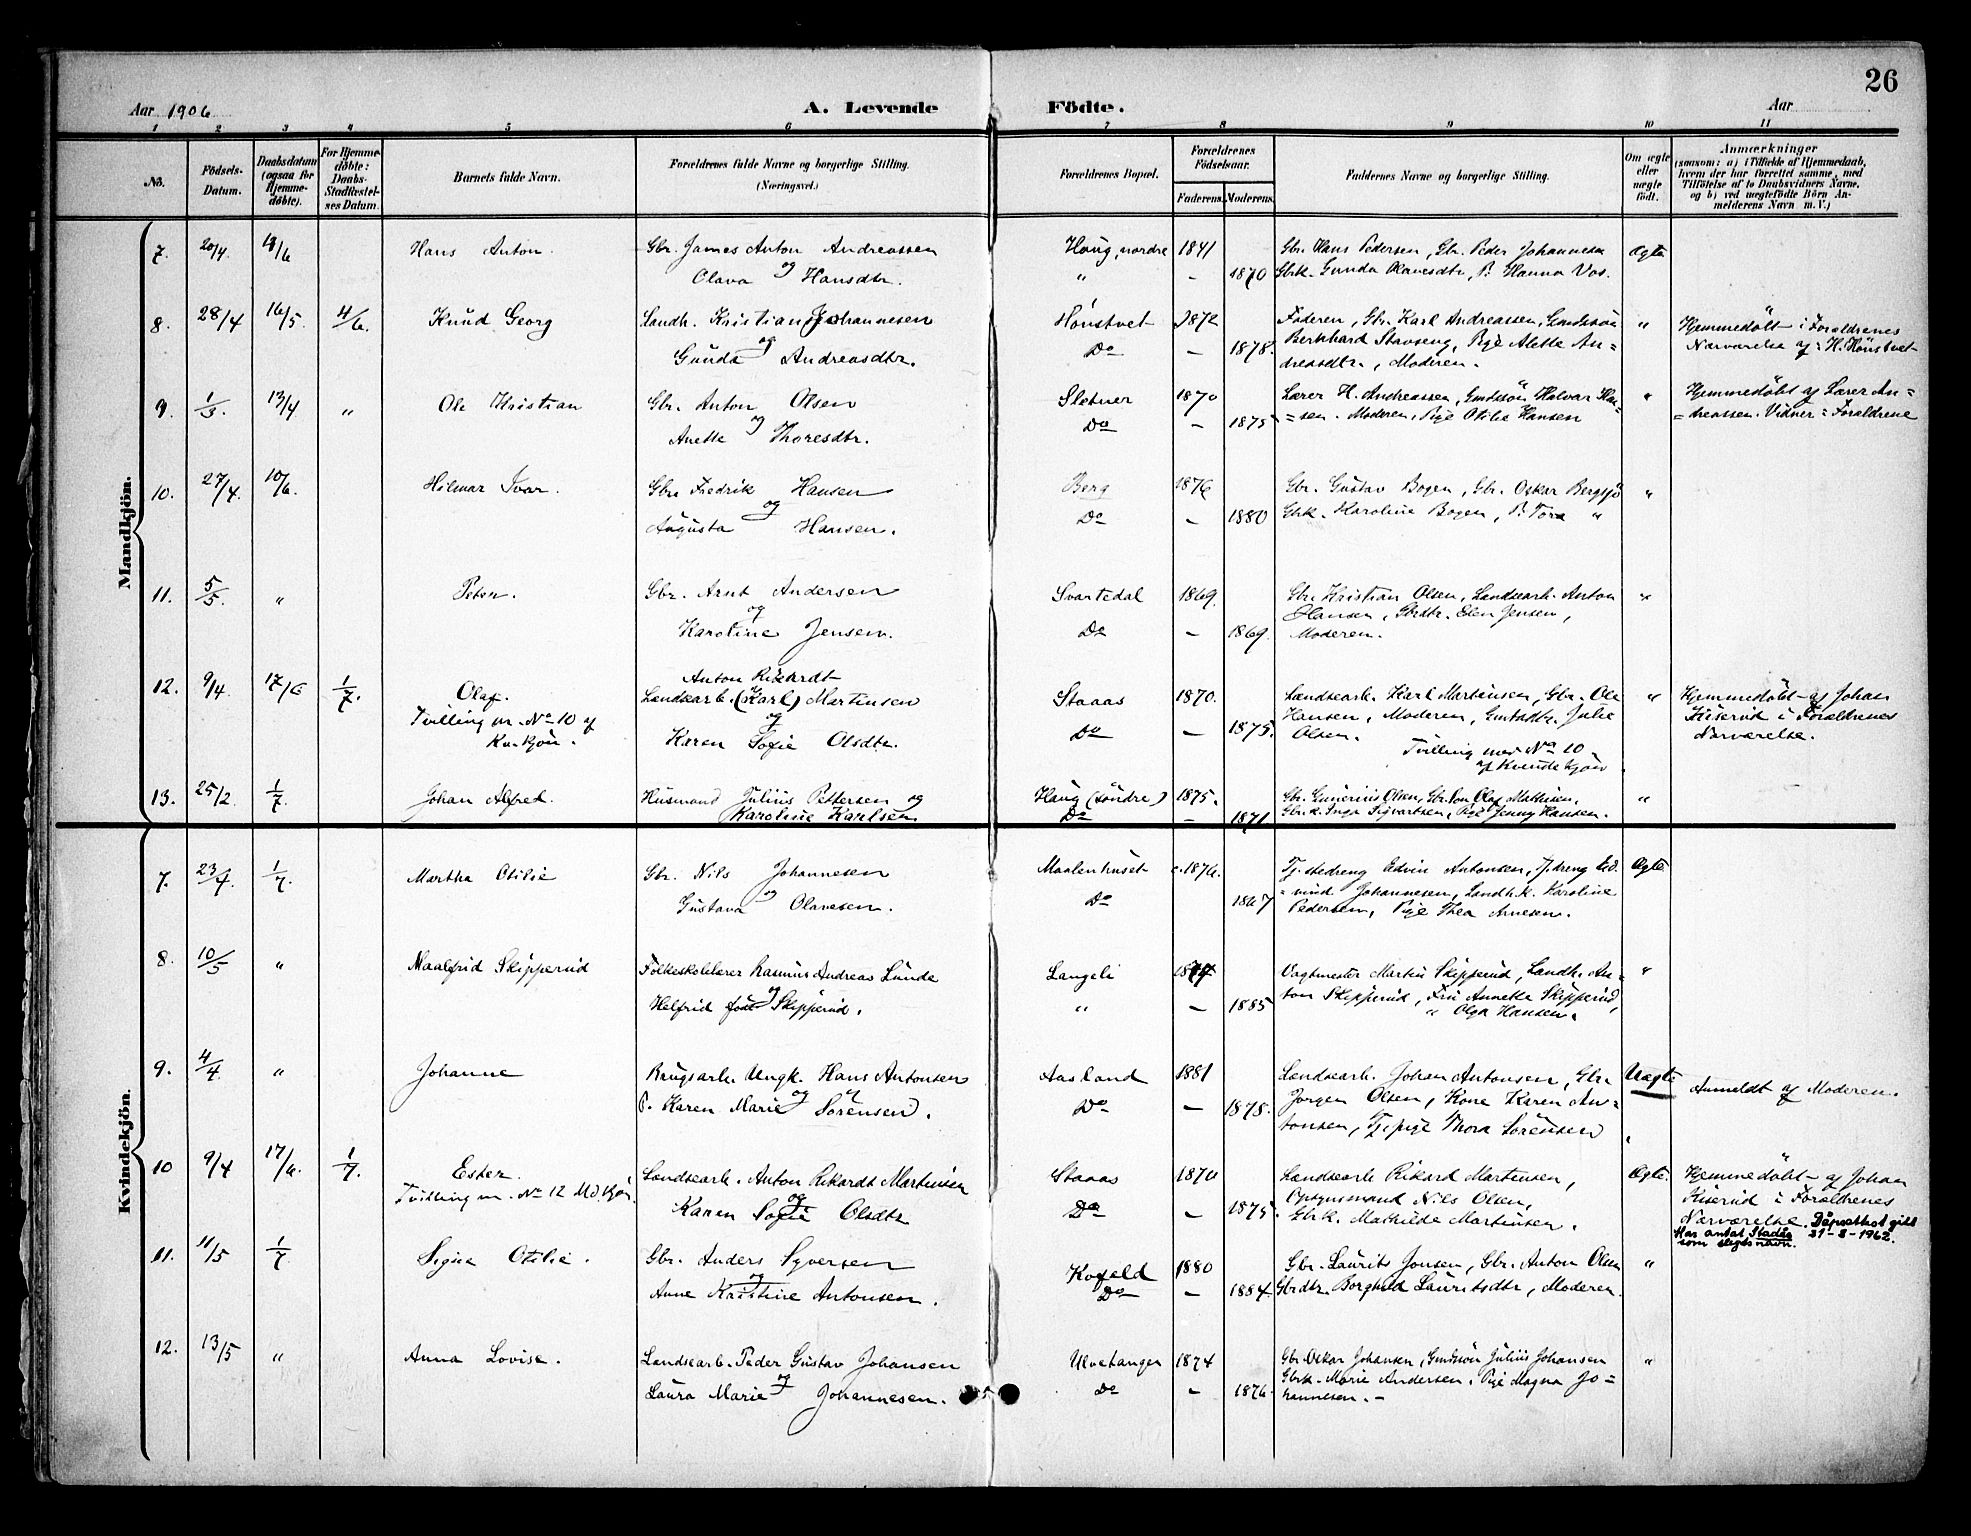 26
Aar 1906
A. Levende Födte.
Aar
1 2 3 4 5 6 7 8 9 10 11
No. Fødsels-Datum. Daabsdatum (ogsaa for Hjemme-døbte). For Hjemme-døbte: Daabs-Stadfæstel-ses Datum. Barnets fulde Navn. Forældrenes fulde Navne og borgerlige Stilling. (Næringsvei.) Forældrenes Bopæl. Forældrenes Fødselsaar. Faderens. Moderens. Faddernes Navne og borgerlige Stilling. Om ægte eller uægte født. Anmærkninger (saasom: a) i Tilfælde af Hjemmedaab, hvem der har forrettet samme, med Tilføielse af to Daabsvidners Navne, og b) ved uægtefødte Børn An-melderens Navn m. V.)
Mandkjön.
7. 20/4 4/6 Hans Anton. Gbr. James Anton Andreassen Haug, nordre 1841 Gbr. Hans Pedersen, Gbr. Peder Johannesen Ægte
og Olava Hansdtr. " – 1870 Gbrk. Gunda Olavesdtr, P. Hanna Vos.
8. 28/4 16/5 4/6. Knud Georg Landh. Kristian Johannesen Hönstvet 1872 Faderen, Gbr. Karl Andreassen, Gmdssön " Hjemmedøbt i Forældrenes
og Gunda Andreasdtr. Do – 1878. Bernhard Stavseng, Pige Alette An= Nærværelse af: H. Hönstvet
dreasdtr., Moderen.
9. 1/3. 13/4 " Ole Kristian Gbr. Anton Olsen Sletner 1870 Lærer H. Andreassen, Gmdssön Halvar Han= " Hjemmedøbt af Lærer An=
og Anette Thoresdtr. Do – 1875 =sen. Moderen, Pige Otilie Hansen =dreassen. Vidner: Forældrene
10. 27/4. 10/6. Hilmar Ivar. Gbr. Fredrik Hansen Berg 1876 Gbr. Gustav Bogen, Gbr. Oskar Bergsjö "
og Augusta Hansen. Do – 1880 Gbrk. Karoline Bogen, P. Tora "
11. 5/5. " Peter. Gbr. Arnt Andersen Svartedal 1869. Gbr. Kristian Olsen, Landsarb. Anton "
og Karoline Jensen. Do – 1869. Hansen, Gbrdtr. Elen Jensen,
Moderen.
Anton Rikardt
12. 9/4. 17/6 1/7. Olaf. Landsarb. (Karl) Martinsen Staaas 1870. Landsarb. Karl Martinsen, Gbr. Ole " Hjemmedøbt af Johan
Tvilling m. No 10 af og Do – 1875. Hansen, Moderen, Gmdsdtr. Julie Kiserud i Forældrenes
Kv.kjön. Karen Sofie Olsdtr. Olsen. Tvilling med No 10 Nærværelse.
af Kvindekjön.
13. 25/2. 1/7. Johan Alfred. Husmand Julius Pettersen og Haug (söndre) 1875. Gbr. Gunerius Olsen, Gbr.sön Olaf Mathisen, "
Karoline Karlsen Do – 1871 Gbrk. Inga Sigvartsen, Pige Jenny Hansen.
Kvindekjön.
7. 23/4. 1/7. Martha Otilie Gbr. Nils Johannesen Maalenhuset 1876. Tjenestedreng Edvin Antonsen, Tj.dreng Ed= Ægte
og Gustava Olavesen. Do 1867 =vind Johannesen, Landh.k. Karoline
Pedersen, Pige Thea Arnesen.
8. 10/5 " Maalfrid Skipperud Folkeskolelærer Rasmus Andreas Lunde Langeli Vagtmester Martin Skipperud, Landh. An= "
og Helfrid født Skipperud. " – 1885 ton Skipperud, Fru Annette Skipperud,
" Olga Hansen.
9. 4/4 " Johanne Brugsarb. Ungk. Hans Antonsen Aasland 1881 Landsarb. Johan Antonsen, Gbr. Uægte Anmeldt af Moderen.
og P. Karen Marie Sörensen. Do – 1878. Jörgen Olsen, Kone Karen An=
tonsen, Tj.pige Thora Sörensen
10 9/4 17/6. 1/7. Ester. Landsarb. Anton Rikardt Martinsen Staaas 1870 Landsarb. Rikard Martinsen, Ægte. Hjemmedøbt af Johan
Tvilling m. No 12 Md.kjön og Karen Sofie Olsdtr Do – 1875. Opsynsmand Nils Olsen, Kiserud i Forældrenes
Gbrk. Mathilde Martinsen. Nærværelse. Dåpsattest gitt
Har antat Stadås 31-8-1962.
som slegtsnavn.
11. 11/5 1/7. Signe Otilie. Gbr. Anders Syversen Kofeld 1880 Gbr. Laurits Jonsen, Gbr. Anton Olsen "
og Anne Kristine Antonsen. Do – 1884. Gbrdtr. Borghild Lauritsdtr, Moderen.
12. 13/5 " Anna Lovise. Landsarb. Peder Gustav Johansen Ulvetangen 1874 Gbr. Oskar Johansen, Gmdssön Julius Johansen "
og Laura Marie Johannesen. Do – 1876 Gbrk. Marie Andersen, Pige Magna Jo=
hannesen. –